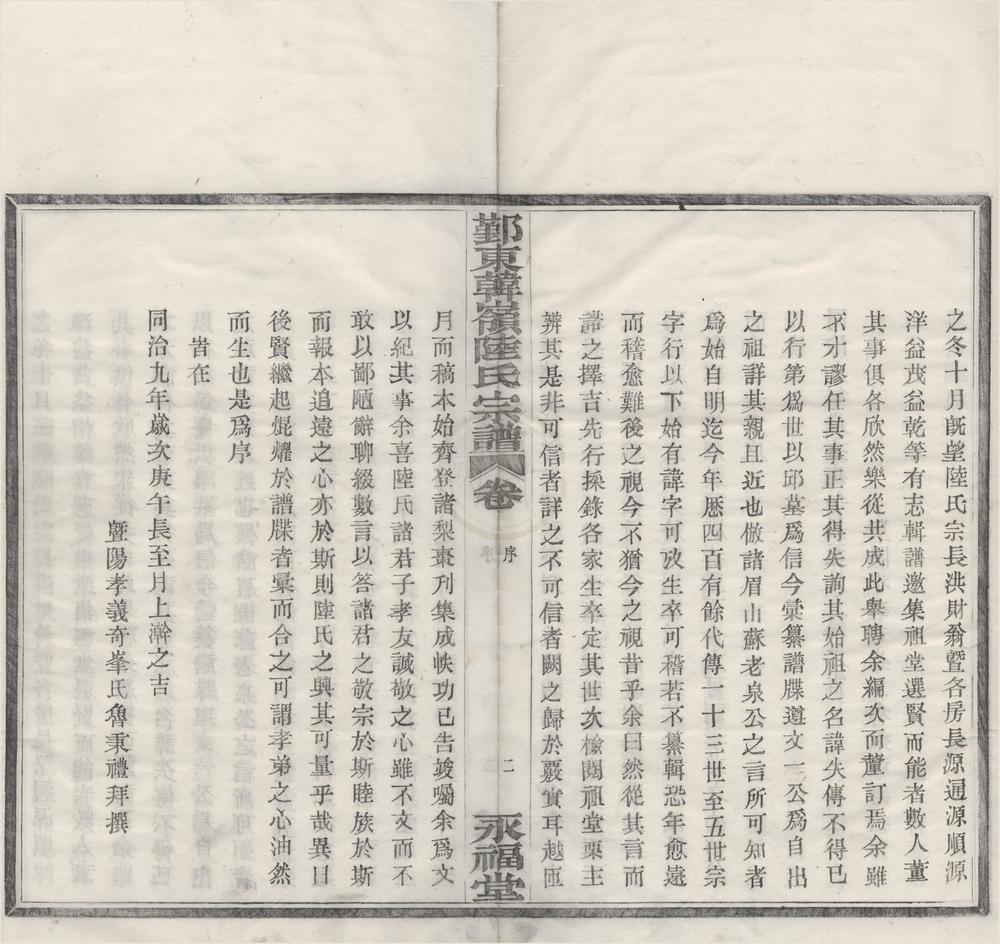 之冬十月旣望陸氏宗長洪財翁暨各房長源通源順源
洋益茂益乾等有志輯譜邀集祖堂選賢而能者數人董
其事俱各欣然樂從共成此舉聘余編次而釐訂焉余雖
不才謬任其事正其得失詢其始祖之名諱失傳不得已
以行第爲世以邱墓爲信今彙纂譜牒遵文一公爲自出
之祖詳其親且近也倣諸眉山蘇老泉公之言所可知者
爲始自明迄今年曆四百有餘代傳一十三世至五世宗
字行以下始有諱字可攷生卒可稽若不纂輯恐年愈遠
而稽愈難後之視今不猶今之視昔乎余曰然從其言而
諾之擇吉先行採錄各家生卒定其世次檢閱祖堂栗主
辨其是非可信者詳之不可信者闕之歸於覈實耳越匝
鄞東韓嶺陸氏宗譜 卷 序 二 永福堂
月而稿本始齊登諸梨棗刋集成帙功已告竣囑余爲文
以紀其事余喜陸氏諸君子孝友誠敬之心雖不文而不
敢以鄙陋辭聊綴數言以答諸君之敬宗於斯睦族於斯
而報本追遠之心亦於斯則陸氏之興其可量乎哉異日
後賢繼起焜燿於譜牒者彙而合之可謂孝弟之心油然
而生也是爲序
旹在
同治九年歲次庚午長至月上澣之吉
暨陽孝義奇峯氏魯秉禮拜撰